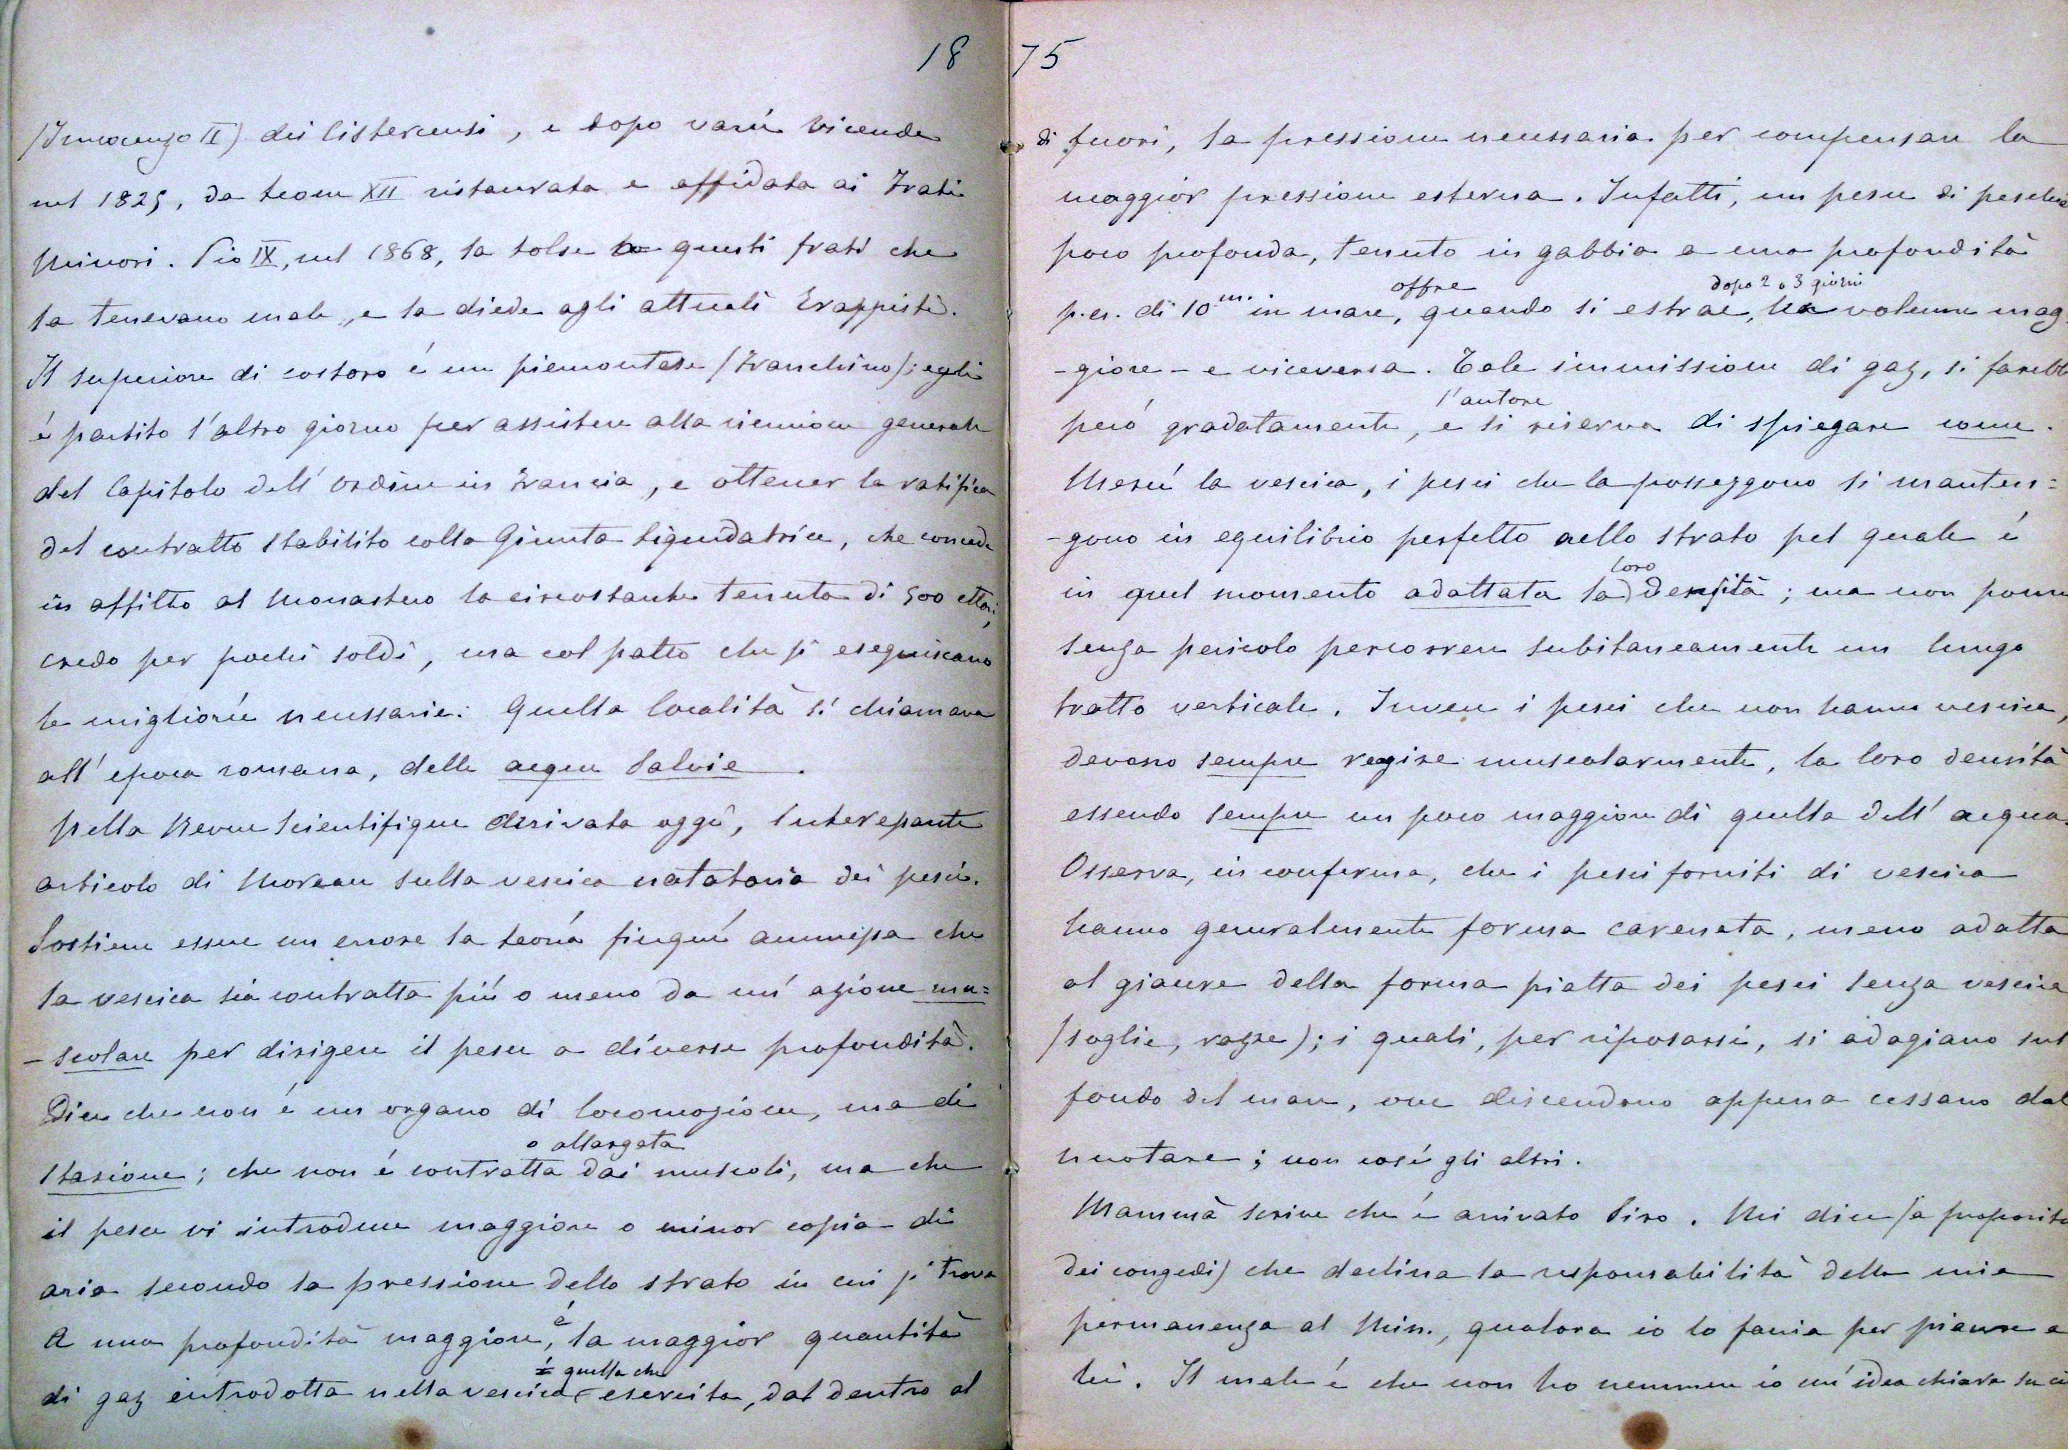 18
(Innocenzo II) dei Cistercensi, e dopo varie vicende
nel 1825, da Leone XII ristaurata e affidata ai Frati
Minori. Pio IX, nel 1868, la tolse a questi frati che
la tenevano male, e la diede agli attuali Trappisti.
Il superiore di costoro é un piemontese (Franchino); egli
é partito l'altro giorno per assistere alla riunione generale
del Capitolo dell'ordine in Francia, e ottener la ratifica
del contratto stabilito colla Giunta liquidatrice, che concede
in affitto al Monastero la circostante tenuta di 500 ettari,
credo per pochi soldi, ma col patto che si eseguiscano
le migliorie necessarie. Quella località si chiamava
all'epoca romana, delle acque Salvie.
Nella Revue Scientifique arrivata oggi, interessante
articolo di Moreau sulla vescica natatoria dei pesci.
Sostiene essere un errore la teoria finquí ammessa che
la vescica sia contratta piú o meno da un'azione mu=
-scolare per dirigere il pesce a diverse profondità.
Dice che non é un organo di locomozione, ma di
o allargata
stazione; che non é contratta dai muscoli, ma che
il pesce vi introduce maggiore o minor copia di
aria secondo la pressione dello strato in cui si trova
A una profondità maggiore, é la maggior quantità
é quella che
di gaz introdotta nella vescica esercita, dal dentro al
75
di fuori, la pressione necessaria per compensare la
maggior pressione esterna. Infatti, un pesce di pesca
poco profonda, tenuto in gabbia a una profondità
offre dopo 2 o 3 giorni
p. es. di 10 m. in mare, quando si estrae, ha volume mag
-giore - e viceversa. Tale immissione di gaz, si farebb
l'autore
peró gradatamente, e si riserva di spiegare come.
Mercé la vescica, i pesci che la posseggono si manten=
-gono in equilibrio perfetto nello strato pel quale é
loro
in quel momento adattata la densità; ma non ponno
senza pericolo percorrere subitaneamente un lungo
tratto verticale. Invece i pesci che non hanno vescica,
devono sempre reagire muscolarmente, la loro densità
essendo sempre un poco maggiore di quella dell'acqua.
Osserva, in conferma, che i pesci forniti di vescica
hanno generalmente forma carenata, meno adatta
al giacere della forma piatta dei pesci senza vescica
(soglie, razze); i quali, per riposarsi, si adagiano sul
fondo del mare, ove discendono appena cessano dal
nuotare; non cosí gli altri.
Mammà scrive che é arrivato Siro. Mi dice (a proposito
dei congedi) che declina la responsabilità della mia
permanenza al Min., qualora io lo faccia per piacere a
lei. Il male é che non ho nemmeno io un'idea chiara su ció